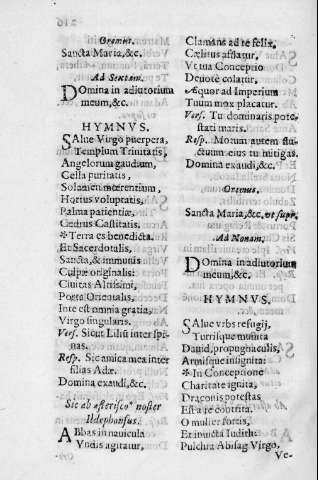 Oremus.
Sancta Maria, &c.
Ad Sextam.
Domina in adiutorium
meum, &c.
HYMNVS.
SAlue Virgo puerpera,
Templum Trinitatis,
Angelorum gaudium,
Cella puritatis,
Solamen mœrentium,
Hortus voluptatis,
Palma patientiæ,
Cedrus Castitatis.
* Terra es benedicta.
Et Sacerdotalis,
Sancta, & immunis
Culpæ originalis:
Ciuitas Altissimi,
Porta Orientalis,
Inte est omnis gratia,
Virgo singularis.
Vers. Sicut Lilium inter spi-
nas.
Resp. Sic amica mea inter
filias Adæ.
Domina exaudi, &c.
Sic ab asterisco * noster
Ildephonsus.
ABbas in nauicula
Vndis agitatur,
Clamans ad te felix,
Cœlitus afflatur,
Vt tua Conceptio
Deuotè colatur,
Æquor ad Imperium
Tuum mox placatur.
Vers. Tu dominaris pote-
stati maris.
Resp. Motum autem flu-
ctuum eius tu mitigas.
Domina exaudi, &c.
Oremus.
Sancta Maria, &c. vt supr.
Ad Nonam.
DOmina in adiutorium
meum, &c.
HYMNVS.
SAlue vrbs refugij,
Turrisque munita
Dauid, propugnaculis,
Armisque insignita:
* In Conceptione
Charitate ignita,
Draconis potestas
Est a te contrita.
O mulier fortis,
Et inuicta Iudith:
Pulchra Abisag Virgo,
Ve-